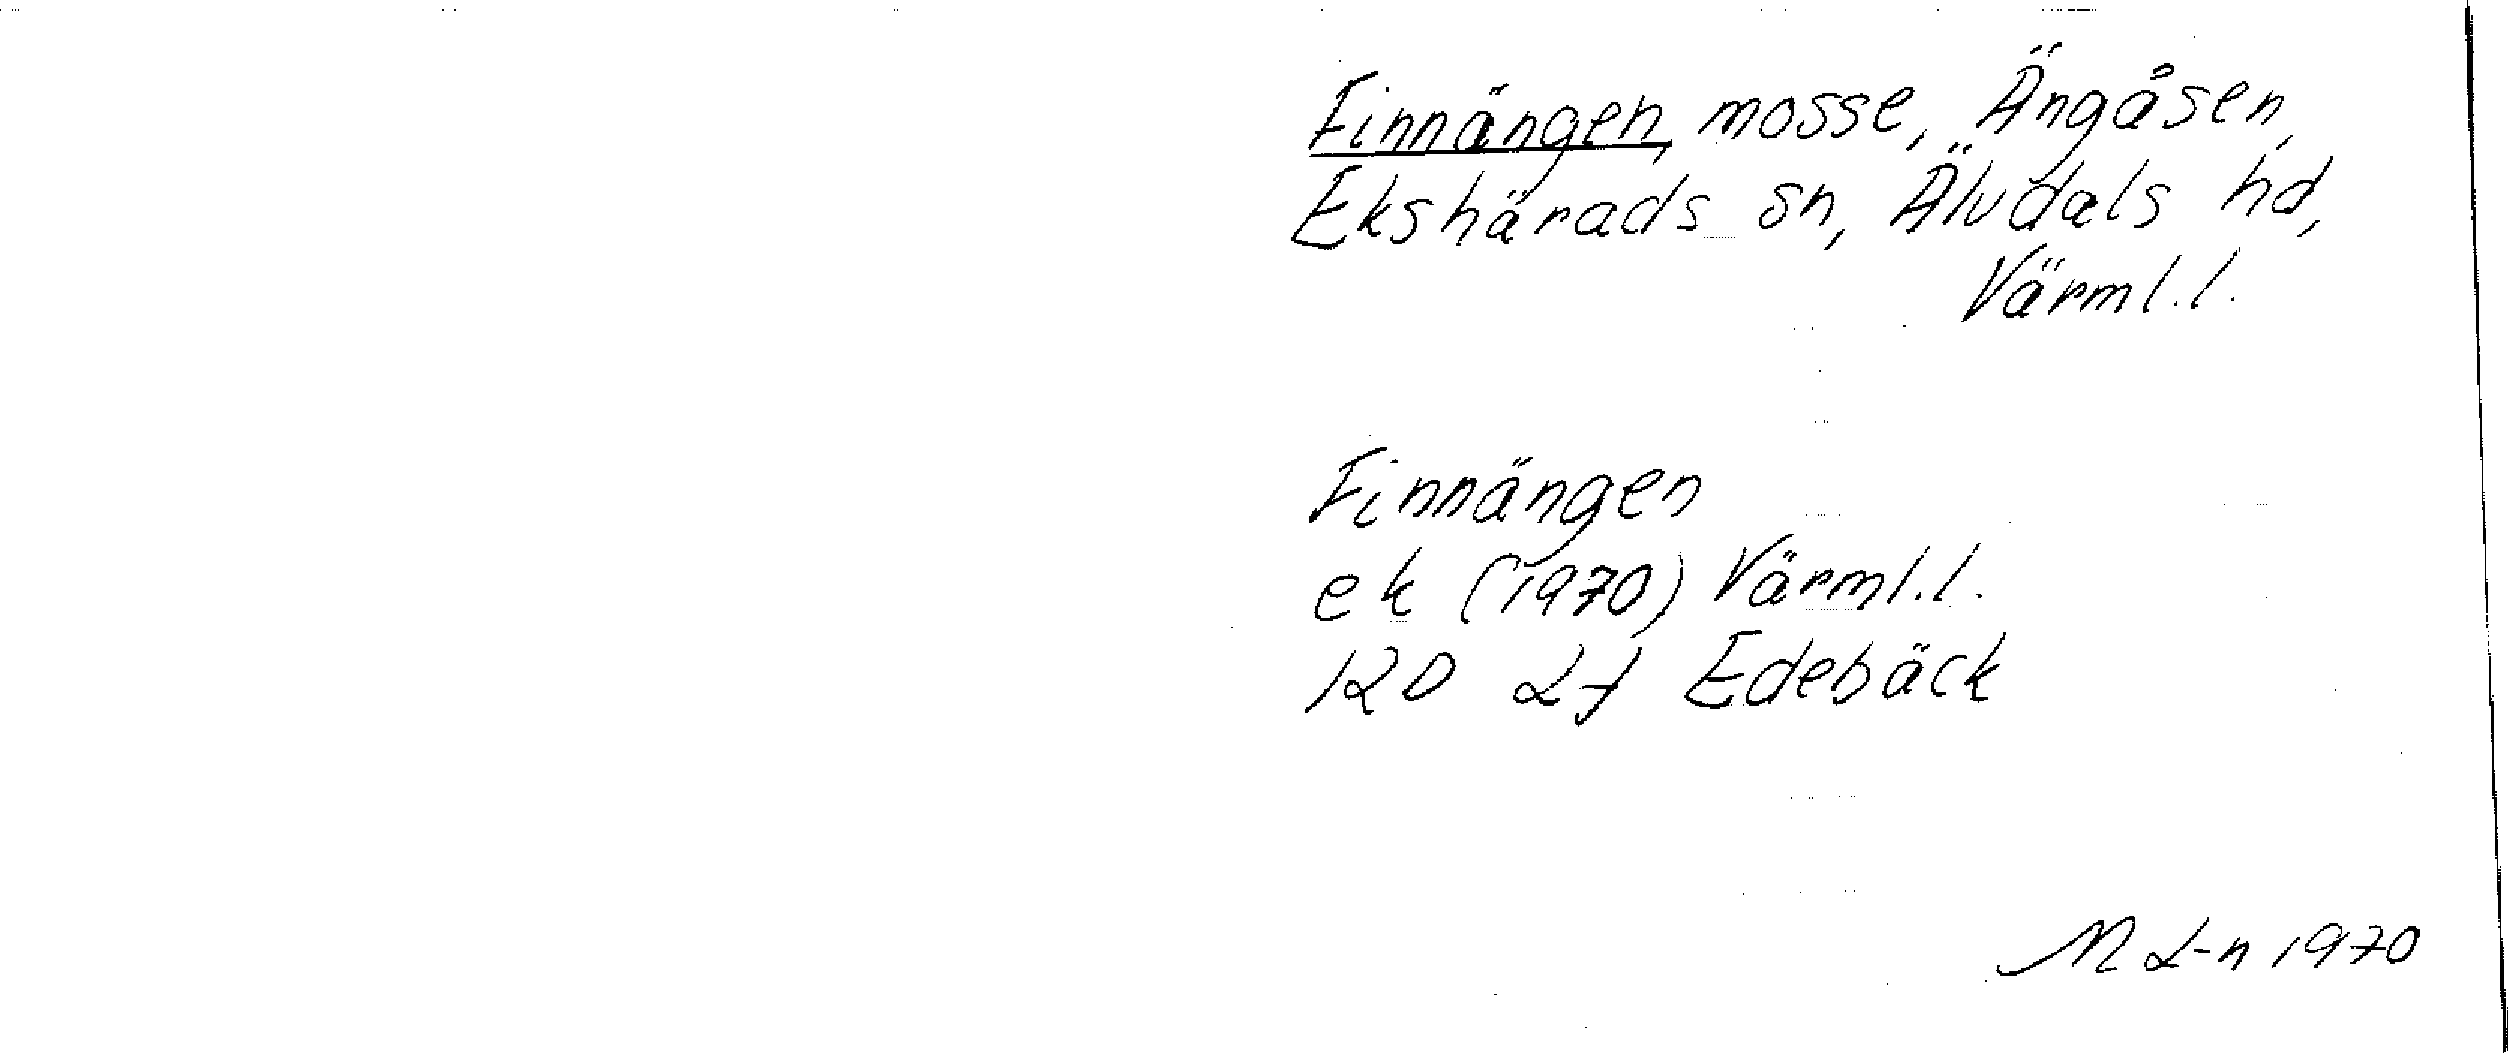 Finnängen, mosse, Ängåsen,
Ekshärads sn, Älvdals hd,
Värml.l.
Finnängen
ek (1970) Värml.l.
12D Lf Edebäck
M L-n 1970